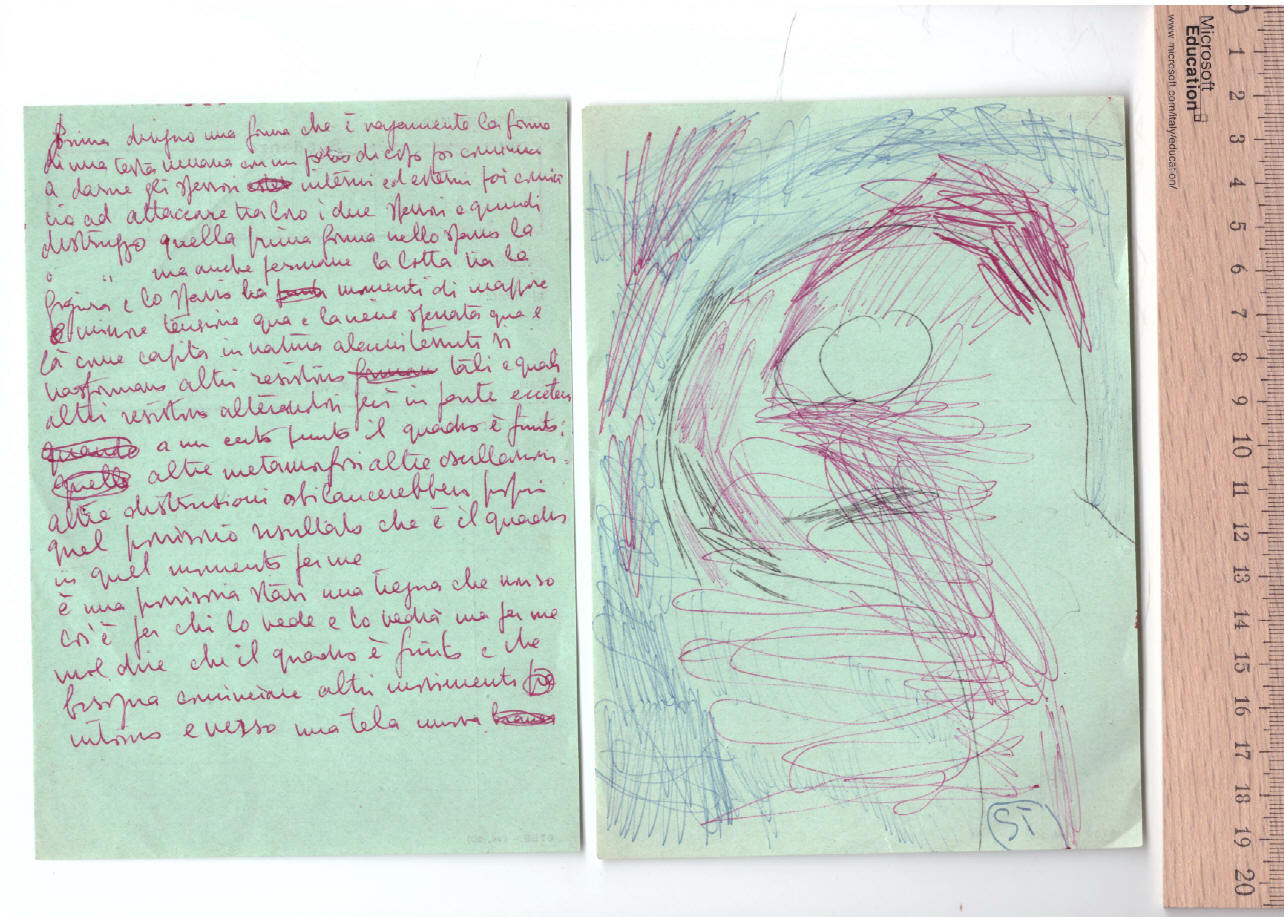 Prima disegno una forma che è vagamente la forma
di una testa umana con un poco di collo poi comincio
a darne gli spessori interni ed esterni poi comin
cio ad attaccare tra loro i due spessori e quindi
distruggo quella prima forma nello spazio la
o " ma anche permane la lotta tra la
figura e lo spazio ha momenti di maggiore
e minore tensione qua e là viene spezzata qua e
là come capita in natura alcuni tessuti si
trasformano altri resistono tali e quali
altri resistono alterandosi però in parte eccetera
a un certo punto il quadro è finito:
altre metamorfosi altre oscillazioni
altre distruzioni sbilancerebbero proprio
quel provvisorio risultato che è il quadro
in quel momento per me
è una provvisoria stasi una tregua che non so
cos'è per chi lo vede e lo vedrà ma per me
vuol dire che il quadro è finito e che
bisogna cominciare altri movimenti
intorno e verso una tela nuova
ST
Microsoft
Education
www.microsoft.com/italy/education/
0 1 2 3 4 5 6 7 8 9 10 11 12 13 14 15 16 17 18 19 20